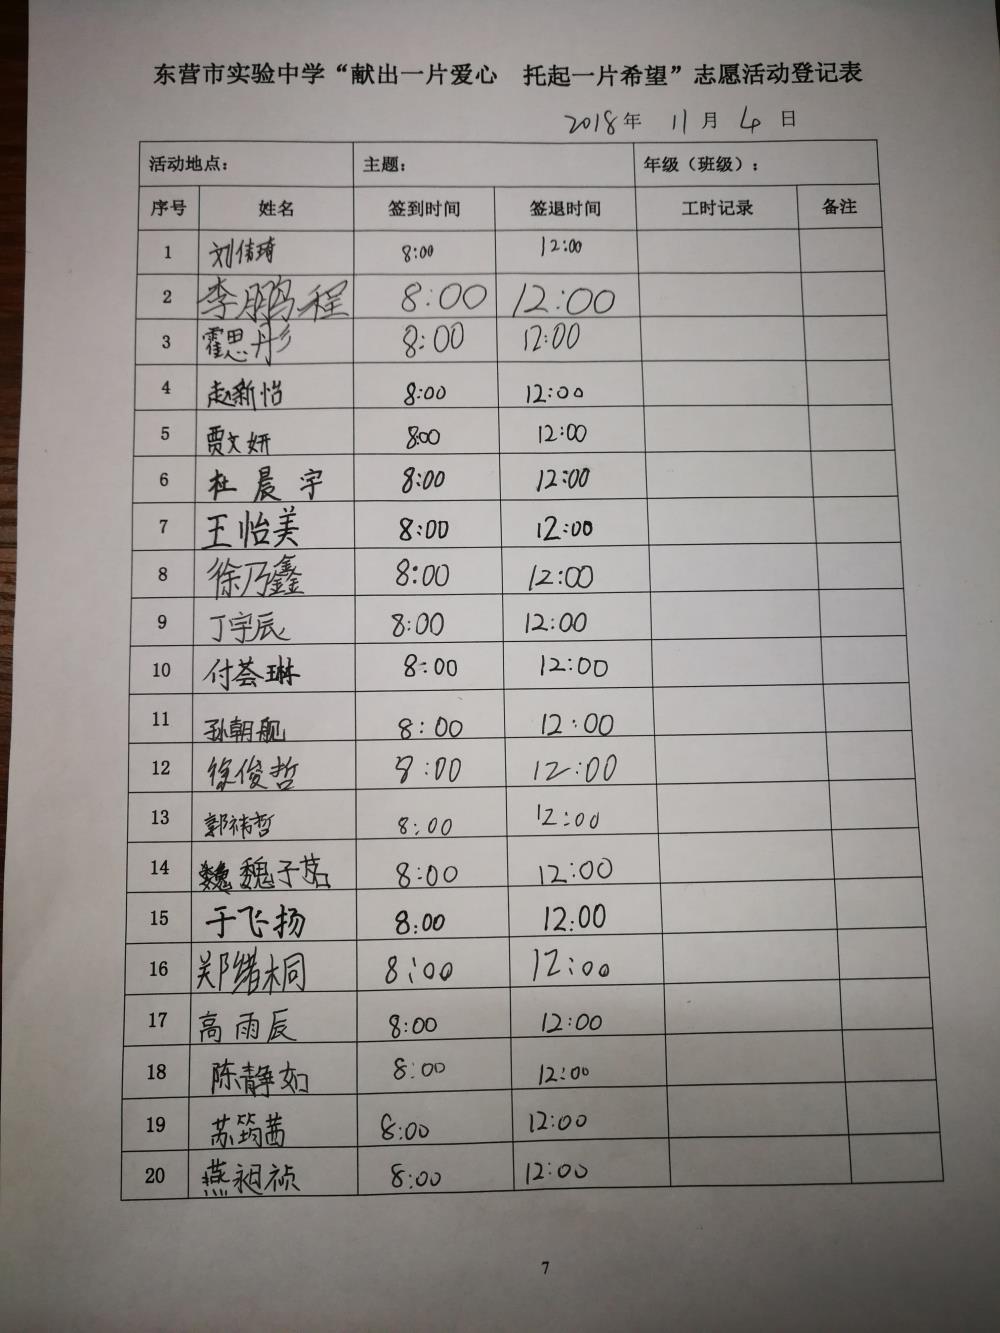 东营市实验中学“献出一片爱心　托起一片希望”志愿活动登记表
2018年 11月 4日
活动地点： 主题： 年级（班级）：
序号 姓名 签到时间 签退时间 工时记录 备注
1 刘倩琦 8:00 12:00
2 李鹏程 8:00 12:00
3 霍思彤 8:00 12:00
4 赵新怡 8:00 12:00
5 贾文妍 8:00 12:00
6 杜晨宇 8:00 12:00
7 王怡美 8:00 12:00
8 徐乃鑫 8:00 12:00
9 丁宇辰 8:00 12:00
10 付荟琳 8:00 12:00
11 孙朝舰 8:00 12:00
12 徐俊哲 8:00 12:00
13 郭祎哲 8:00 12:00
14 魏子茗 8:00 12:00
15 于飞扬 8:00 12:00
16 郑绪桐 8:00 12:00
17 高雨辰 8:00 12:00
18 陈静如 8:00 12:00
19 苏筠茜 8:00 12:00
20 燕昶祯 8:00 12:00
7